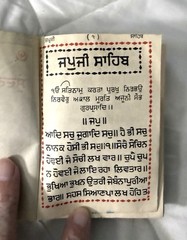 ਜਪੁਜੀ (੧) ਸਾਹਿਬ
ਜਪੁਜੀ ਸਾਹਿਬ
ੴ ਸਤਿਨਾਮੁ ਕਰਤਾ ਪੁਰਖੁ ਨਿਰਭਉ
ਨਿਰਵੈਰੁ ਅਕਾਲ ਮੂਰਤਿ ਅਜੂਨੀ ਸੈਭੰ
ਗੁਰਪ੍ਰਸਾਦਿ॥
॥ ਜਪੁ॥
ਆਦਿ ਸਚੁ ਜੁਗਾਦਿ ਸਚੁ॥ ਹੈ ਭੀ ਸਚੁ
ਨਾਨਕ ਹੋਸੀ ਭੀ ਸਚੁ॥੧॥ਸੋਚੈ ਸੋਚਿ ਨ
ਹੋਵਈ ਜੇ ਸੋਚੀ ਲਖ ਵਾਰ॥ ਚੁਪੈ ਚੁਪਿ
ਨ ਹੋਵਈ ਜੇ ਲਾਇ ਰਹਾ ਲਿਵਤਾਰ॥
ਭੁਖਿਆ ਭੁਖ ਨ ਉਤਰੀ ਜੇ ਬੰਨਾ ਪੁਰੀਆ
ਭਾਰ॥ ਸਹਸ ਸਿਆਣਪਾ ਲਖ ਹੋਹਿ ਤ